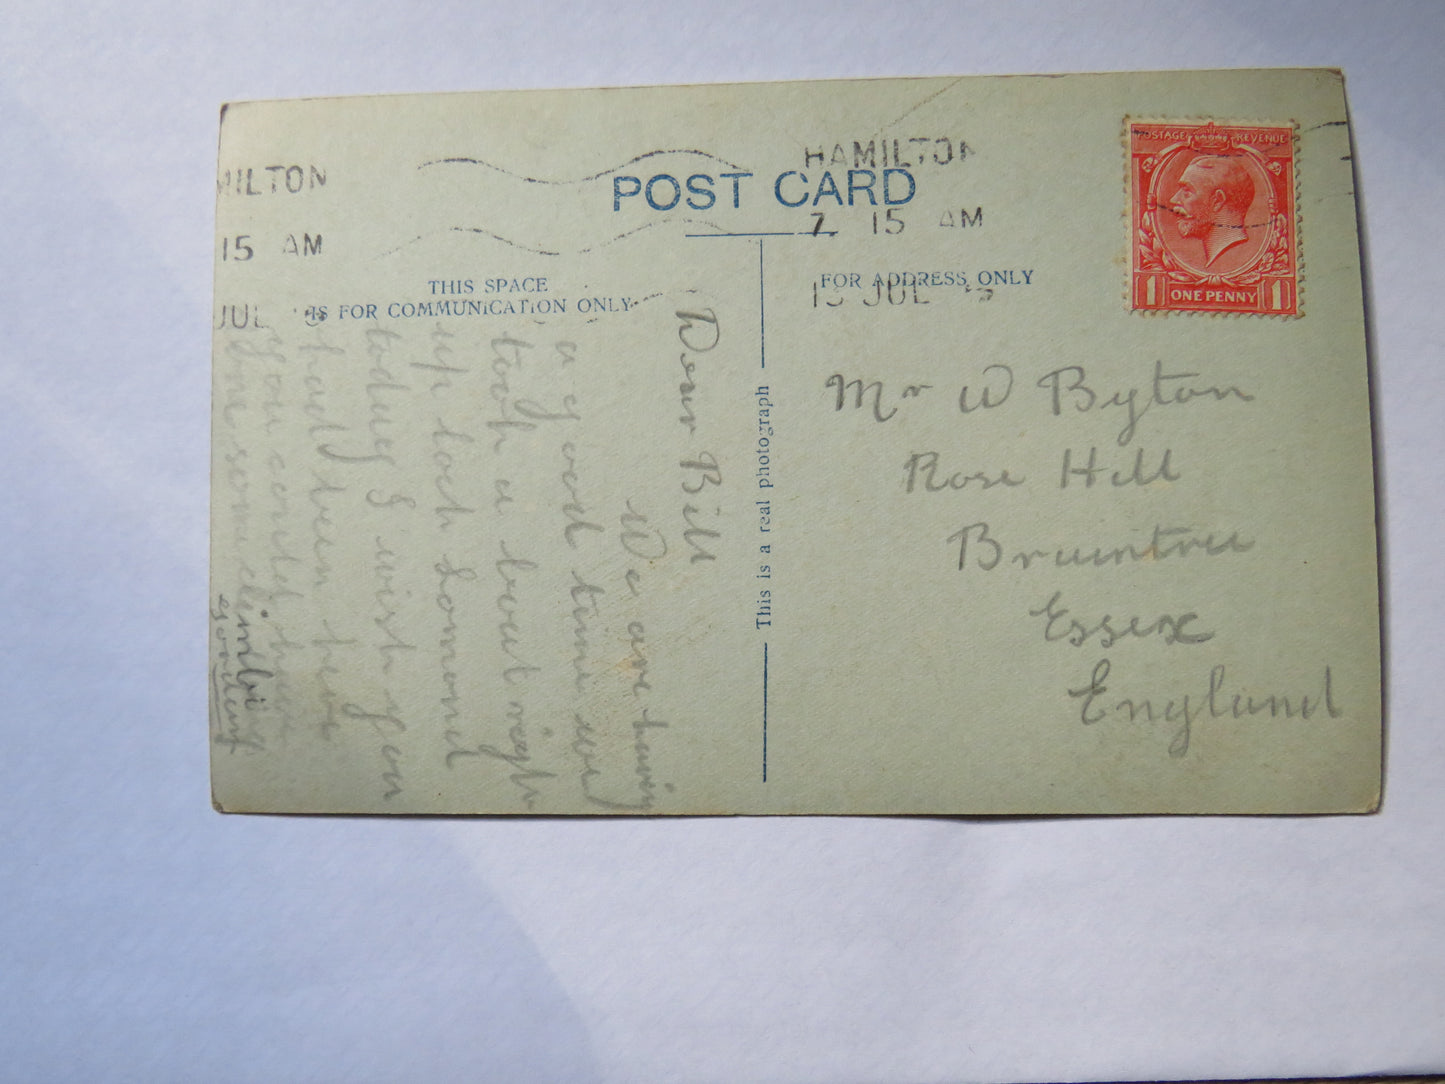 MILTON
15 AM
JUL
HAMILTON
7. 15 AM
15 JUL
POST CARD
THIS SPACE
IS FOR COMMUNICATION ONLY
FOR ADDRESS ONLY
POSTAGE REVENUE
1 ONE PENNY 1
This is a real photograph
Dear Bill
We are having
a good time we
took a boat right
up loch Lomond
today I wish you
had been here
you could have
done some climbing
Gordon
Mr W Byton
Rose Hill
Braintree
Essex
England